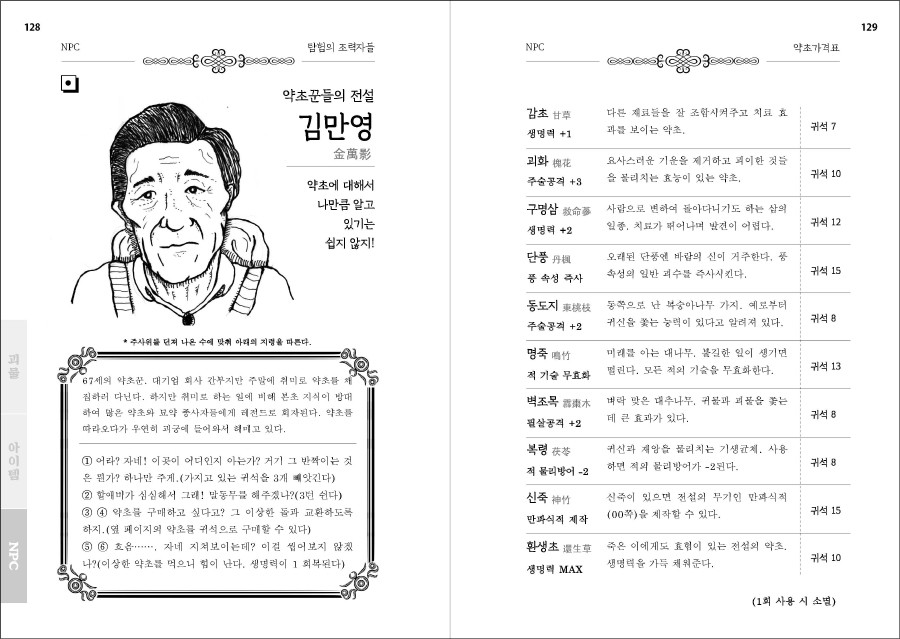 128
NPC
탐험의 조력자들
약초꾼들의 전설
김만영
金萬影
약초에 대해서
나만큼 알고
있기는
쉽지 않지!
* 주사위를 던져 나온 수에 맞춰 아래의 지령을 따른다.
67세의 약초꾼. 대기업 회사 간부지만 주말에 취미로 약초를 채
집하러 다닌다. 하지만 취미로 하는 일에 비해 본초 지식이 방대
하여 많은 약초와 묘약 종사자들에게 레전드로 회자된다. 약초를
따라오다가 우연히 괴궁에 들어와서 헤매고 있다.
① 어라? 자네! 이곳이 어디인지 아는가? 거기 그 반짝이는 것
은 뭔가? 하나만 주게.(가지고 있는 귀석을 3개 빼앗긴다)
② 할애비가 심심해서 그래! 말동무를 해주겠나?(3턴 쉰다)
③ ④ 약초를 구매하고 싶다고? 그 이상한 돌과 교환하도록
하지.(옆 페이지의 약초를 귀석으로 구매할 수 있다)
⑤ ⑥ 흐음……, 자네 지쳐보이는데? 이걸 씹어보지 않겠
나?(이상한 약초를 먹으니 힘이 난다. 생명력이 1 회복된다)
괴물
아이템
NPC
129
NPC
약초가격표
감초 甘草
생명력 +1
다른 재료들을 잘 조합시켜주고 치료 효
과를 보이는 약초.
귀석 7
괴화 槐花
주술공격 +3
요사스러운 기운을 제거하고 괴이한 것들
을 물리치는 효능이 있는 약초.
귀석 10
구명삼 救命蔘
생명력 +2
사람으로 변하여 돌아다니기도 하는 삼의
일종. 치료가 뛰어나며 발견이 어렵다.
귀석 12
단풍 丹楓
풍 속성 즉사
오래된 단풍엔 바람의 신이 거주한다. 풍
속성의 일반 괴수를 즉사시킨다.
귀석 15
동도지 東桃枝
주술공격 +2
동쪽으로 난 복숭아나무 가지. 예로부터
귀신을 쫓는 능력이 있다고 알려져 있다.
귀석 8
명죽 鳴竹
적 기술 무효화
미래를 아는 대나무. 불길한 일이 생기면
떨린다. 모든 적의 기술을 무효화한다.
귀석 13
벽조목 霹棗木
필살공격 +2
벼락 맞은 대추나무. 귀물과 괴물을 쫓는
데 큰 효과가 있다.
귀석 8
복령 茯苓
적 물리방어 -2
귀신과 재앙을 물리치는 기생균체. 사용
하면 적의 물리방어가 -2된다.
귀석 8
신죽 神竹
만파식적 제작
신죽이 있으면 전설의 무기인 만파식적
(00쪽)을 제작할 수 있다.
귀석 15
환생초 還生草
생명력 MAX
죽은 이에게도 효험이 있는 전설의 약초.
생명력을 가득 채워준다.
귀석 10
(1회 사용 시 소멸)